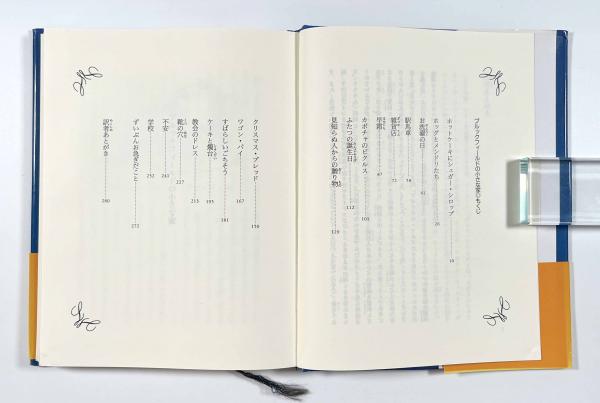 ブルックフィールドの小さな家・もくじ
ホットケーキにシュガー・シロップ………10
ホッグとメンドリたち………26
お洗濯の日………
駅馬車………58
雑貨店………73
早霜………87
カボチャのピクルス………103
ふたつの誕生日………112
見知らぬ人からの贈り物………129
クリスマス・ブレッド………150
ワゴン・パイ………167
すばらしいごちそう………181
ケーキと燭台………195
教会のドレス………213
靴の穴………227
不安………241
学校………252
ずいぶんお急ぎだこと………272
訳者あとがき………280